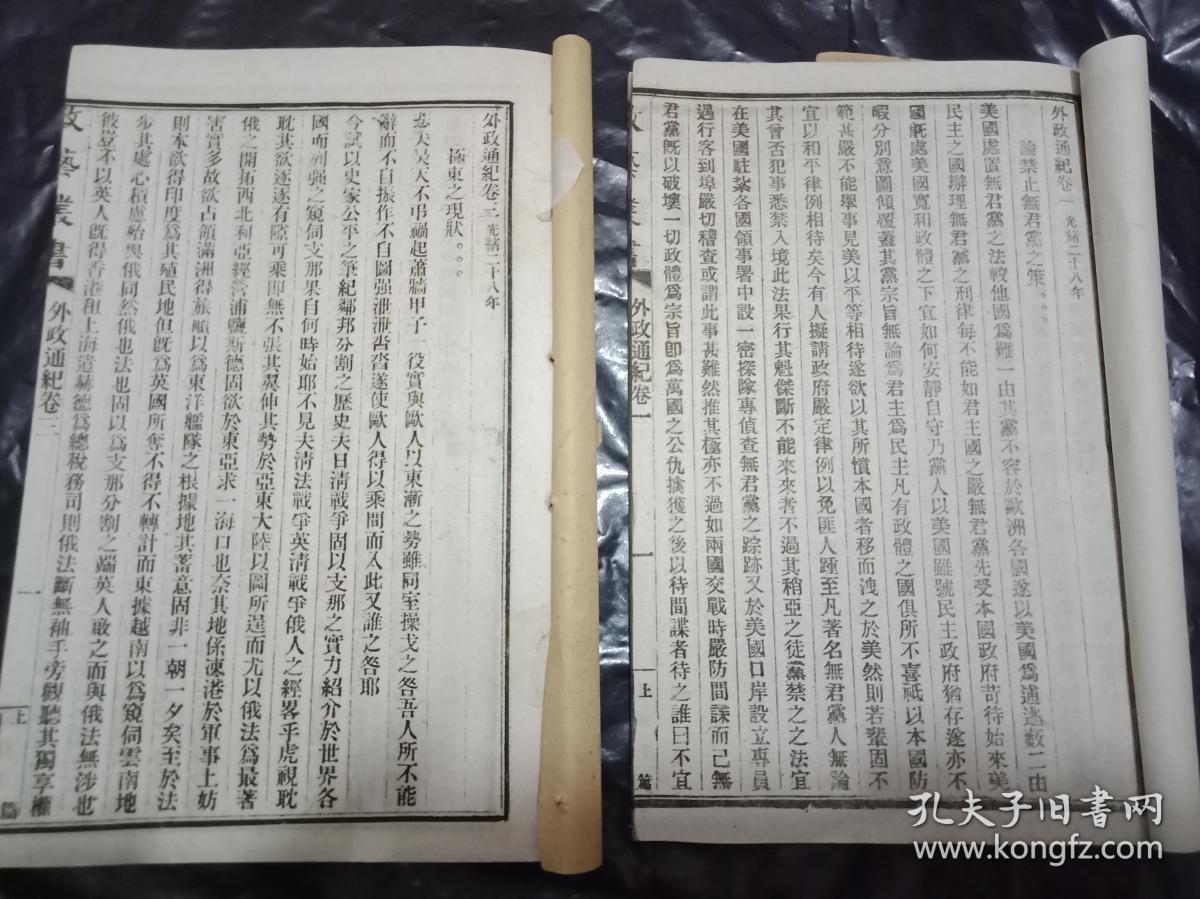 外政通紀卷一 光緒二十八年
論禁止無君黨之策
美國處置無君黨之法較他國爲難一由其黨不容於歐洲各國遂以美國爲逋逃藪二由
民主之國辦理無君黨之刑律每不能如君主國之嚴無君黨先受本國政府苛待始來美
國旣處美國寬和政體之下宜如何安靜自守乃黨人以美國雖號民主政府猶存遂亦不
暇分別意圖傾覆蓋其黨宗旨無論爲君主爲民主凡有政體之國俱所不喜祗以本國防
範甚嚴不能舉事見美以平等相待遂欲以其所憤本國者移而洩之於美然則若輩固不
宜以和平律例相待矣今有人擬請政府嚴定律例以免匪人踵至凡著名無君黨人無論
其曾否犯事悉禁入境此法果行其魁傑斷不能來來者不過其稍亞之徒黨禁之之法宜
在美國駐紮各國領事署中設一密探隊專偵查無君黨之踪跡又於美國口岸設立專員
遇行客到埠嚴切稽查或謂此事甚難然推其極亦不過如兩國交戰時嚴防間諜而已無
君黨旣以破壞一切政體爲宗旨卽爲萬國之公仇擒獲之後以待間諜者待之誰曰不宜
外政通紀卷一
一
上
篇
外政通紀卷三 光緒二十八年
極東之現狀
悲夫昊天不弔禍起蕭牆甲子一役實與歐人以東漸之勢雖同室操戈之咎吾人所不能
辭而不自振作不自圖强泄泄沓沓遂使歐人得以乘間而入此又誰之咎耶
今試以史家公平之筆紀鄰邦分割之歷史夫日淸戰爭固以支那之實力紹介於世界各
國而列强之窺伺支那果自何時始耶不見夫淸法戰爭英淸戰爭俄人之經畧乎虎視耽
耽其欲逐逐有隙可乘卽無不張其翼伸其勢於亞東大陸以圖所逞而尤以俄法爲最著
俄之開拓西北利亞經營浦鹽斯德固欲於東亞求一海口也奈其地係凍港於軍事上妨
害實多故欲占領滿洲得旅順以爲東洋艦隊之根據地其蓄意固非一朝一夕矣至於法
則本欲得印度爲其殖民地但旣爲英國所奪不得不轉計而東據越南以爲窺伺雲南地
步其處心積慮殆與俄同然俄也法也固以爲支那分割之端英人敢之而與俄法無涉也
彼豈不以英人旣得香港租上海遣赫德爲總稅務司則俄法斷無袖手旁觀聽其獨享權
政藝叢書
外政通紀卷三
一
上
篇
孔夫子旧书网
www.kongfz.com